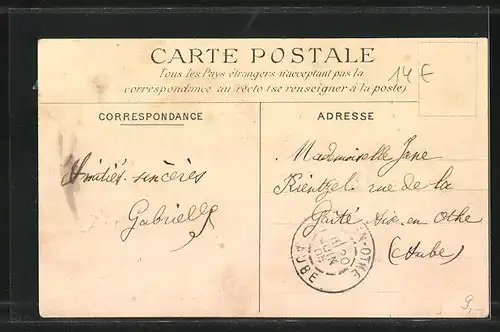 CARTE POSTALE
Tous les Pays étrangers n'acceptant pas la
correspondance au recto (se renseigner à la poste)
14€
CORRESPONDANCE
ADRESSE
Amitiés sincères
Gabrielle
Mademoiselle Jane
Kientzel rue de la
Gaité Aix-en Othe
(Aube)
N-OTHE
AUBE
9,-